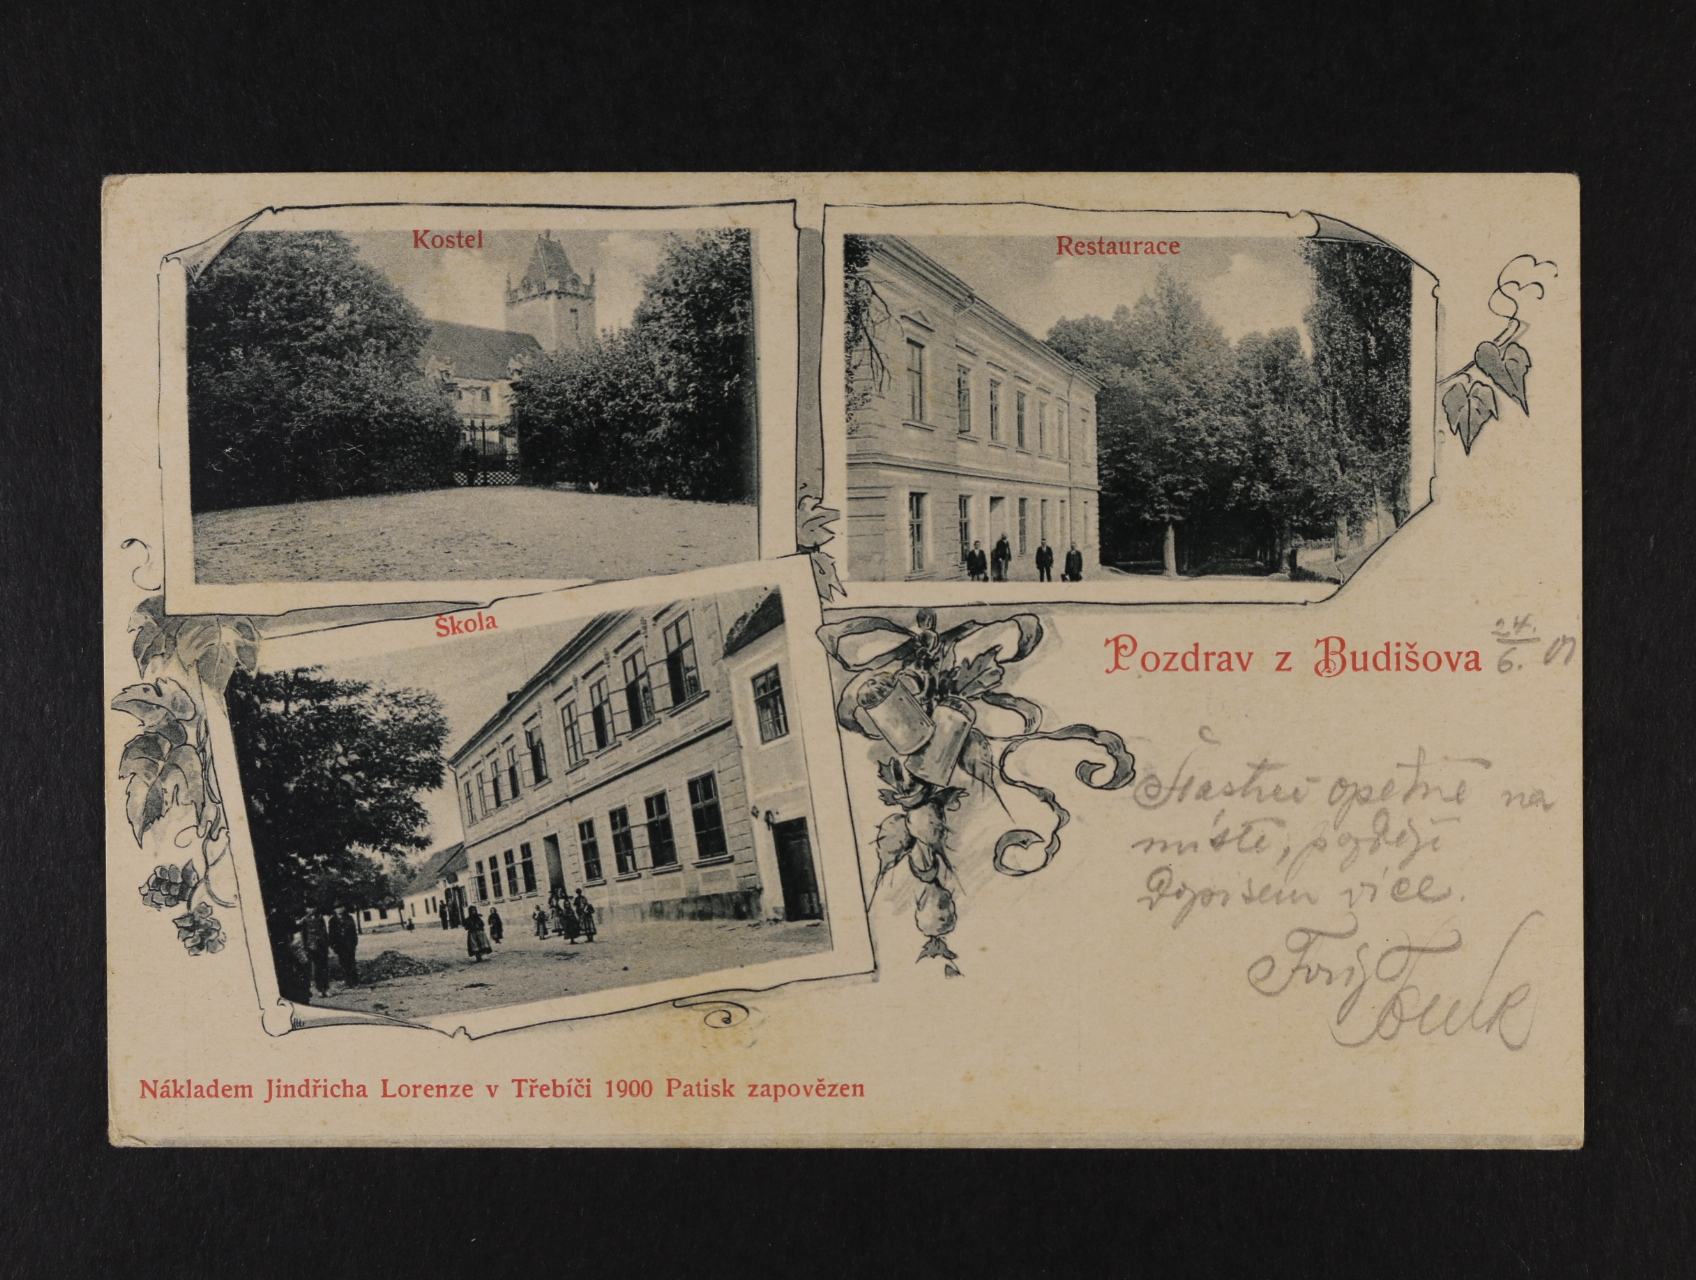 Kostel
Restaurace
Škola
Pozdrav z Budišova
24.
6. 01
opětně na
místě, později
Dopisem více.
Nákladem Jindřicha Lorenze v Třebíči 1900 Patisk zapovězen